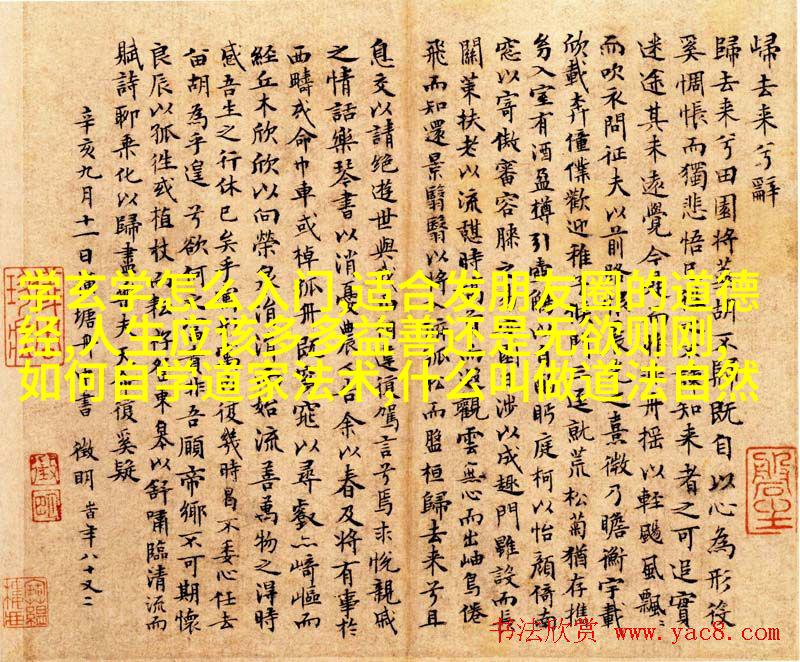 歸去来兮辭
歸去来兮田園將蕪胡不歸既自以心為形役
奚惆悵而獨悲悟知来者之可追實
迷途其未遠覺今舟摇以輕颺風飄〻
而吹衣問征夫以前路之熹微乃瞻衡宇載
欣載奔僮僕歡迎稚三逕就荒松菊猶存攜
幼入室有酒盈樽引壺觴以自酌眄庭柯以怡顔倚南
窓以寄傲審容膝之涉以成趣門雖設而長
關策扶老以流憩時觀雲無心而出岫鳥倦
飛而知還景翳翳以將入孤松而盤桓歸去来兮且
息交以請絶遊世與我遺復駕言兮焉求悅親戚
之情話樂琴書以消憂農人告余以春及將有事於
西疇或命巾車或棹孤舟既窈窕以尋壑亦崎嶇而
經丘木欣欣以向榮泉涓涓始流善萬物之得時
感吾生之行休已矣乎寓形宇内復幾時曷不委心任去
留胡為乎遑兮欲何之富貴非吾願帝鄉不可期懷
良辰以孤徃或植杖耘耔登東皋以舒嘯臨清流而
賦詩聊乘化以歸盡樂夫天復奚疑
辛亥九月十一日横塘舟中書 徵明 時年八十又二
学玄学怎么入门,适合发朋友圈的道德
经,人生应该多多益善还是无欲则刚,
如何自学道家法术,什么叫做道法自然
书法欣赏 www.yac8.com